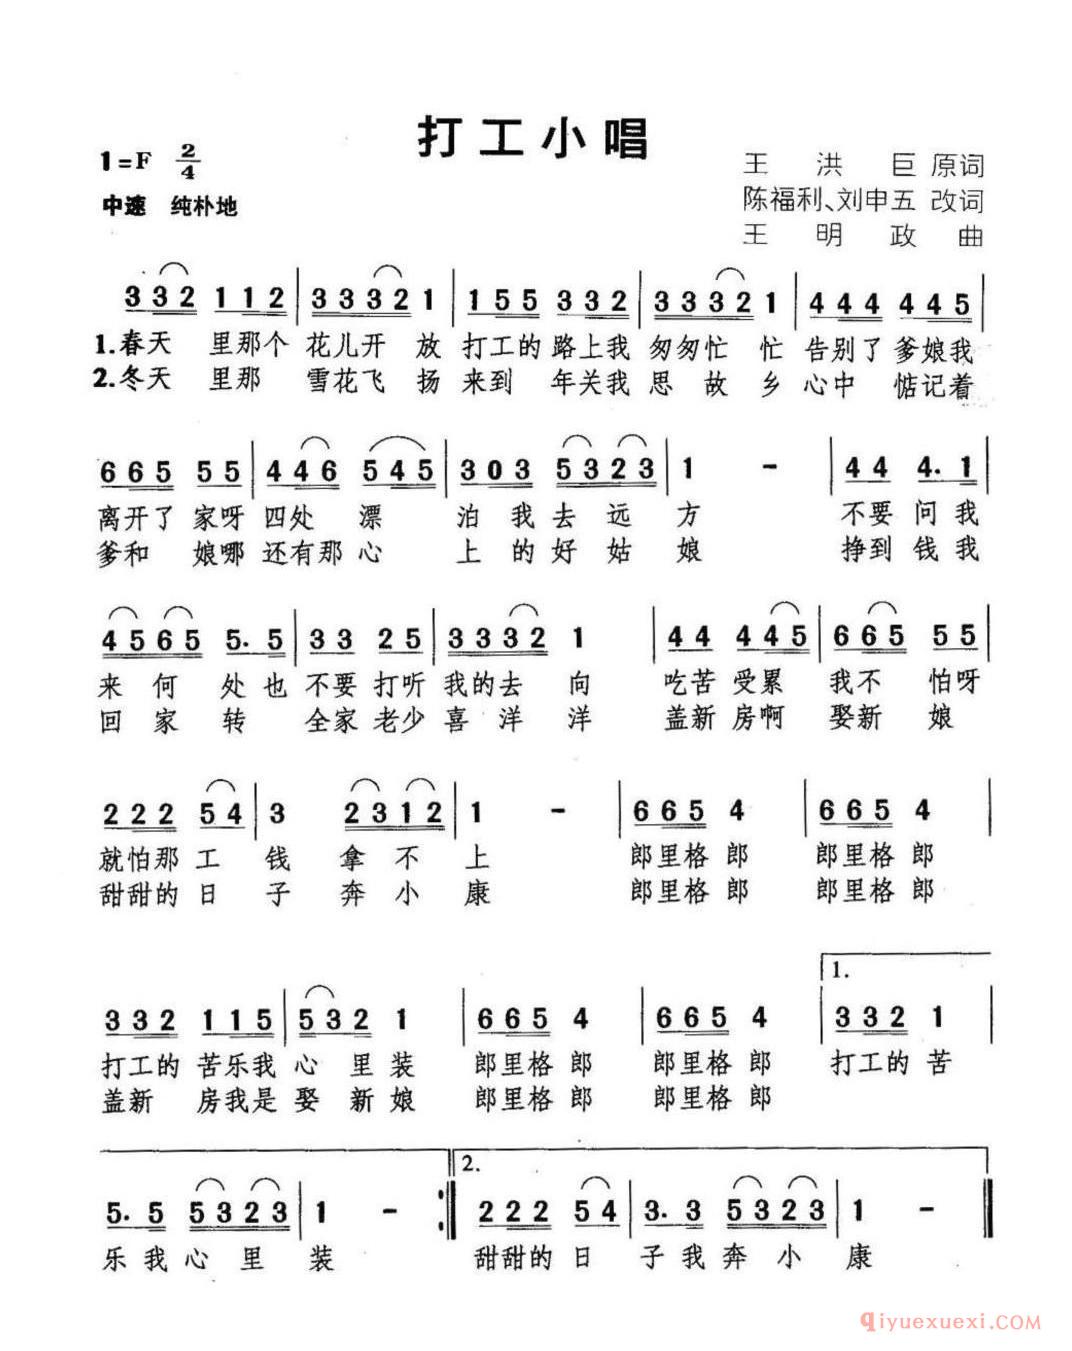 打工小唱
1=F 2/4
中速 纯朴地
王洪巨 原词
陈福利、刘申五 改词
王明政 曲
3 3 2 1 1 2 | 3 3 3 2 1 | 1 5 5 3 3 2 | 3 3 3 2 1 | 4 4 4 4 4 5 |
1.春天 里那个 花儿开 放 打工的 路上我 匆匆忙 忙 告别了 爹娘我
2.冬天 里那 雪花飞 扬 来到 年关我 思故乡 心中 惦记着
6 6 5 5 5 | 4 4 6 5 4 5 | 3 0 3 5 3 2 3 | 1 - | 4 4 4. 1 |
离开了 家呀 四处 漂 泊 我 去 远 方 不要 问我
爹和 娘哪 还有那 心 上 的 好 姑 娘 挣到 钱我
4 5 6 5 5. 5 | 3 3 2 5 | 3 3 3 2 1 | 4 4 4 4 5 | 6 6 5 5 5 |
来 何 处 也 不要 打听 我的去 向 吃苦 受累 我不 怕呀
回 家 转 全家 老少 喜 洋 洋 盖新 房啊 娶新 娘
2 2 2 5 4 | 3 2 3 1 2 | 1 - | 6 6 5 4 | 6 6 5 4 |
就怕那 工 钱 拿 不 上 郎里格 郎 郎里格 郎
甜甜的 日 子 奔 小 康 郎里格 郎 郎里格 郎
1.
3 3 2 1 1 5 | 5 3 2 1 | 6 6 5 4 | 6 6 5 4 | 3 3 2 1 |
打工的 苦乐我 心 里 装 郎里格 郎 郎里格 郎 打工的 苦
盖新 房我是 娶 新 娘 郎里格 郎 郎里格 郎
2.
5. 5 5 3 2 3 | 1 - :‖ 2 2 2 5 4 | 3. 3 5 3 2 3 | 1 - ‖
乐 我 心 里 装 甜甜的 日 子 我 奔 小 康
qiyuexuexi.COM